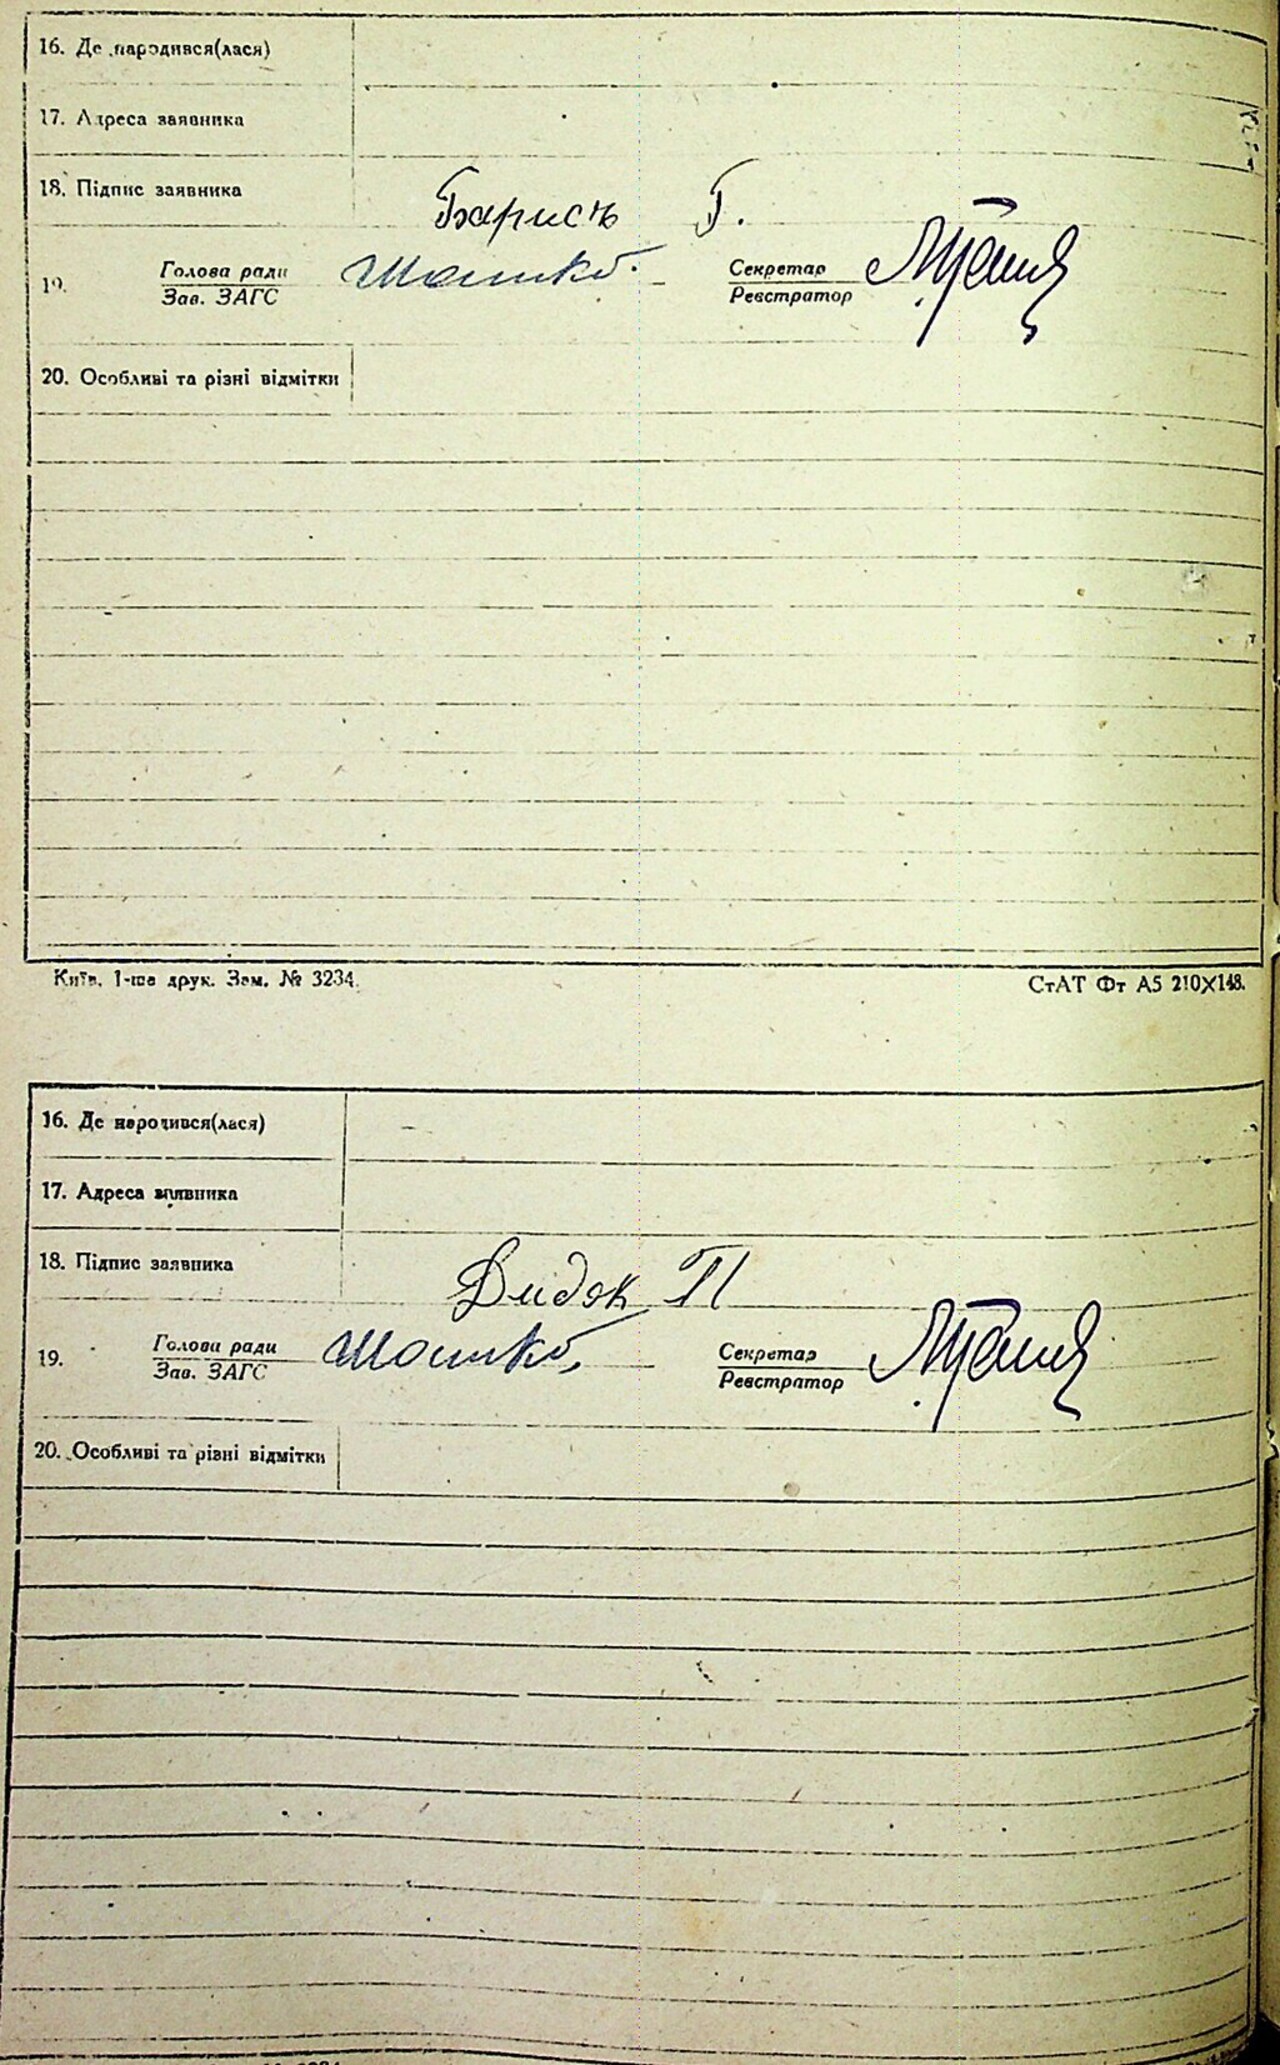 16. Де народився(лася)
17. Адреса заявника
18. Підпис заявника Барись Г.
19. Голова ради Секретар
Зав. ЗАГС Реєстратор
20. Особливі та різні відмітки
Київ. 1-ша друк. Зам. № 3234. СтАТ Фт А5 210X148.
16. Де народився(лася)
17. Адреса заявника
18. Підпис заявника Дидяк П
19. Голова ради Секретар
Зав. ЗАГС Реєстратор
20. Особливі та різні відмітки